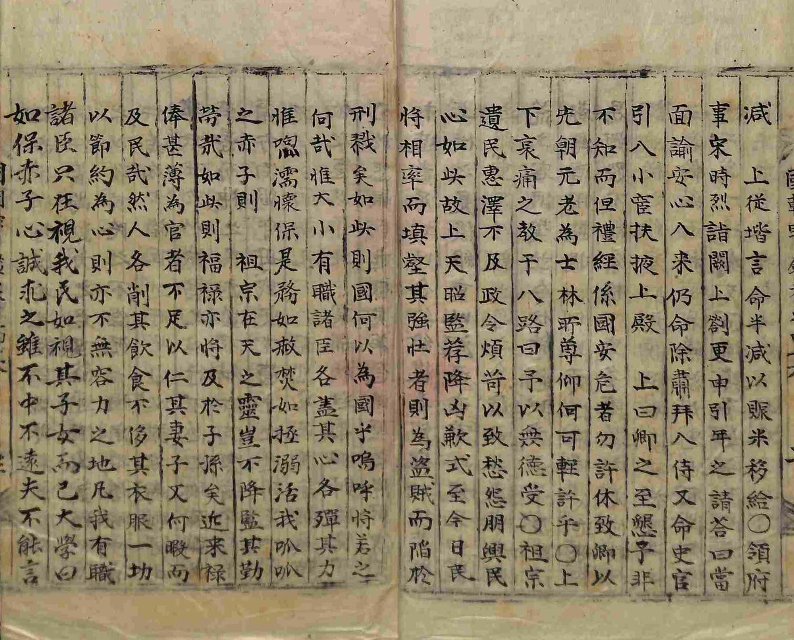 減　上從堦言命半減以賑米移給○領府
事宋時烈詣闕上劄更申引年之請答曰當
面諭安心入來仍命除肅拜入侍又命史官
引入小宦扶掖上殿　上曰卿之至懇予非
不知而但禮經係國安危者勿許休致卿以
先朝元老為士林所尊仰何可輕許乎○上
下哀痛之敎于八路曰予以無德受○祖宗
遺民惠澤不及政令煩苛以致愁怨朋興民
心如此故上天昭監荐降凶歉式至今日民
將相率而填壑其強壯者則為盜賊而陷於
刑戮矣如此則國何以為國乎嗚呼將若之
何哉惟大小有職諸臣各盡其心各殫其力
惟喣濡懷保是務如救焚如拯溺活我呱呱
之赤子則　祖宗在天之靈豈不降監其勤
勞哉如此則福祿亦將及於子孫矣近來祿
俸甚薄為官者不足以仁其妻子又何暇而
及民哉然人各削其飮食不侈其衣服一切
以節約為心則亦不無容力之地凡我有職
諸臣只在視我民如視其子女而已大學曰
如保赤子心誠求之雖不中不遠夫不能言